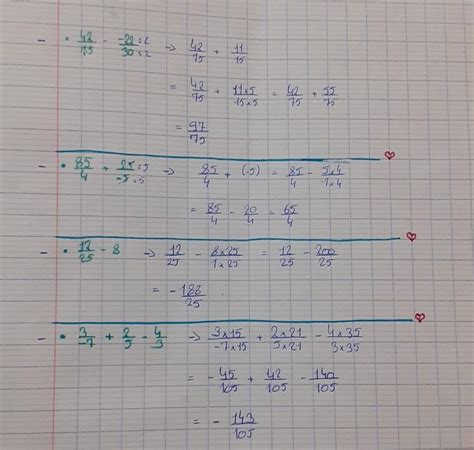 - • 42/75 - -22:2/30:2 → 42/75 + 11/15
= 42/75 + 11×5/15×5 = 42/75 + 55/75
= 97/75
- • 85/4 + 25:5/-5:5 → 85/4 + (-5) = 85/4 - 5×4/1×4
= 85/4 - 20/4 = 65/4
- • 12/25 - 8 → 12/25 - 8×25/1×25 = 12/25 - 200/25
= - 188/25
- • 3/-7 + 2/5 - 4/3 → 3×15/-7×15 + 2×21/5×21 - 4×35/3×35
= - 45/105 + 42/105 - 140/105
= - 143/105